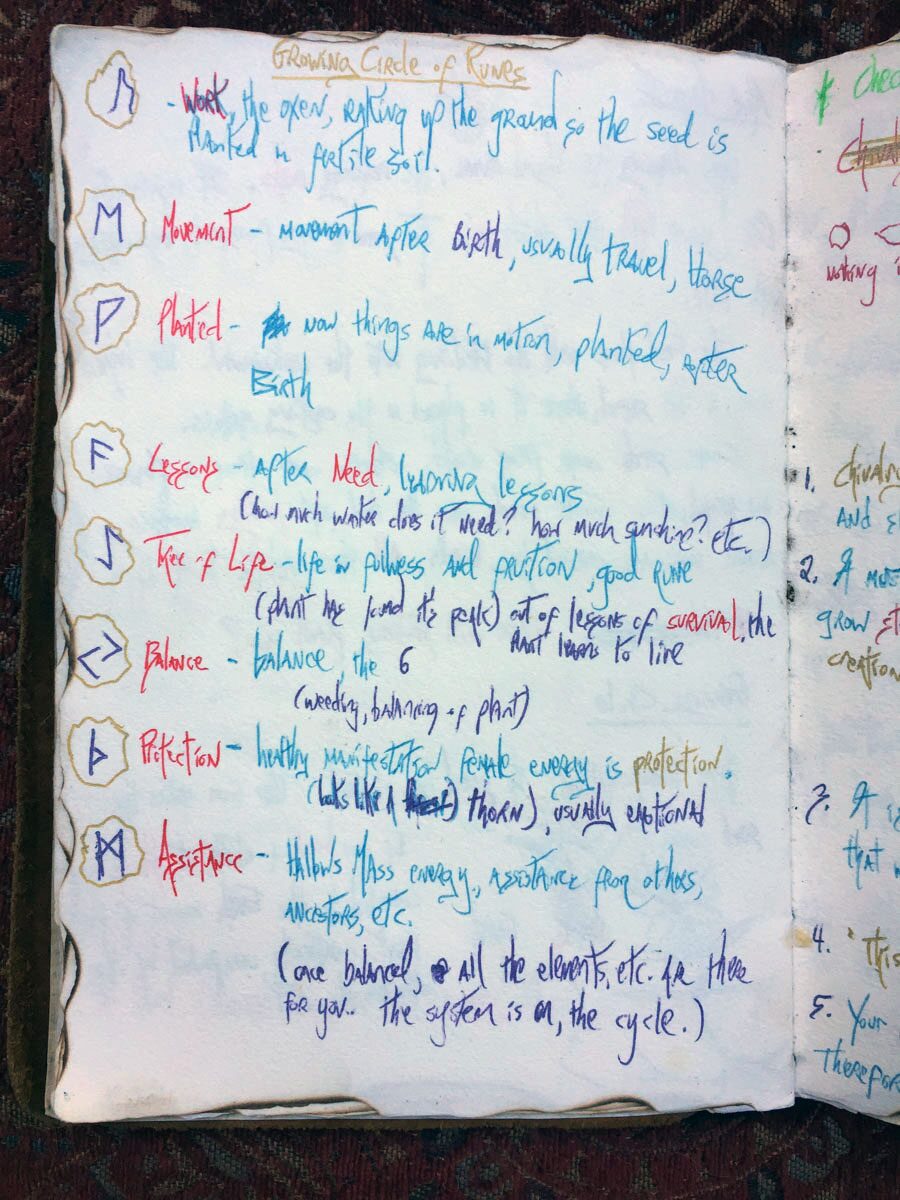 Growing Circle of Runes
ᚢ - Work, the oxen, raking up the ground so the seed is
planted in fertile soil.
ᛖ Movement - movement after Birth, usually travel, Horse
ᚹ Planted - now things are in motion, planted, after
Birth
ᚨ Lessons - after Need, learning lessons
(how much water does it need? how much sunshine? etc.)
Tree of Life - life in fullness and fruition, good rune
(plant has found it's peak) out of lessons of survival, the
plant learns to live
ᛃ Balance - balance, the 6
(weeding, balancing of plant)
ᚦ Protection - healthy manifestation female energy is protection,
(looks like a thorn), usually emotional
ᛗ Assistance - Hallows Mass energy, assistance from others,
ancestors, etc.
(once balanced, all the elements, etc. are there
for you.. the system is on, the cycle.)
nothing
1. Chivalry
And
2. A
grow
creation
3. A
that
4. "This
5. Your
Therefor